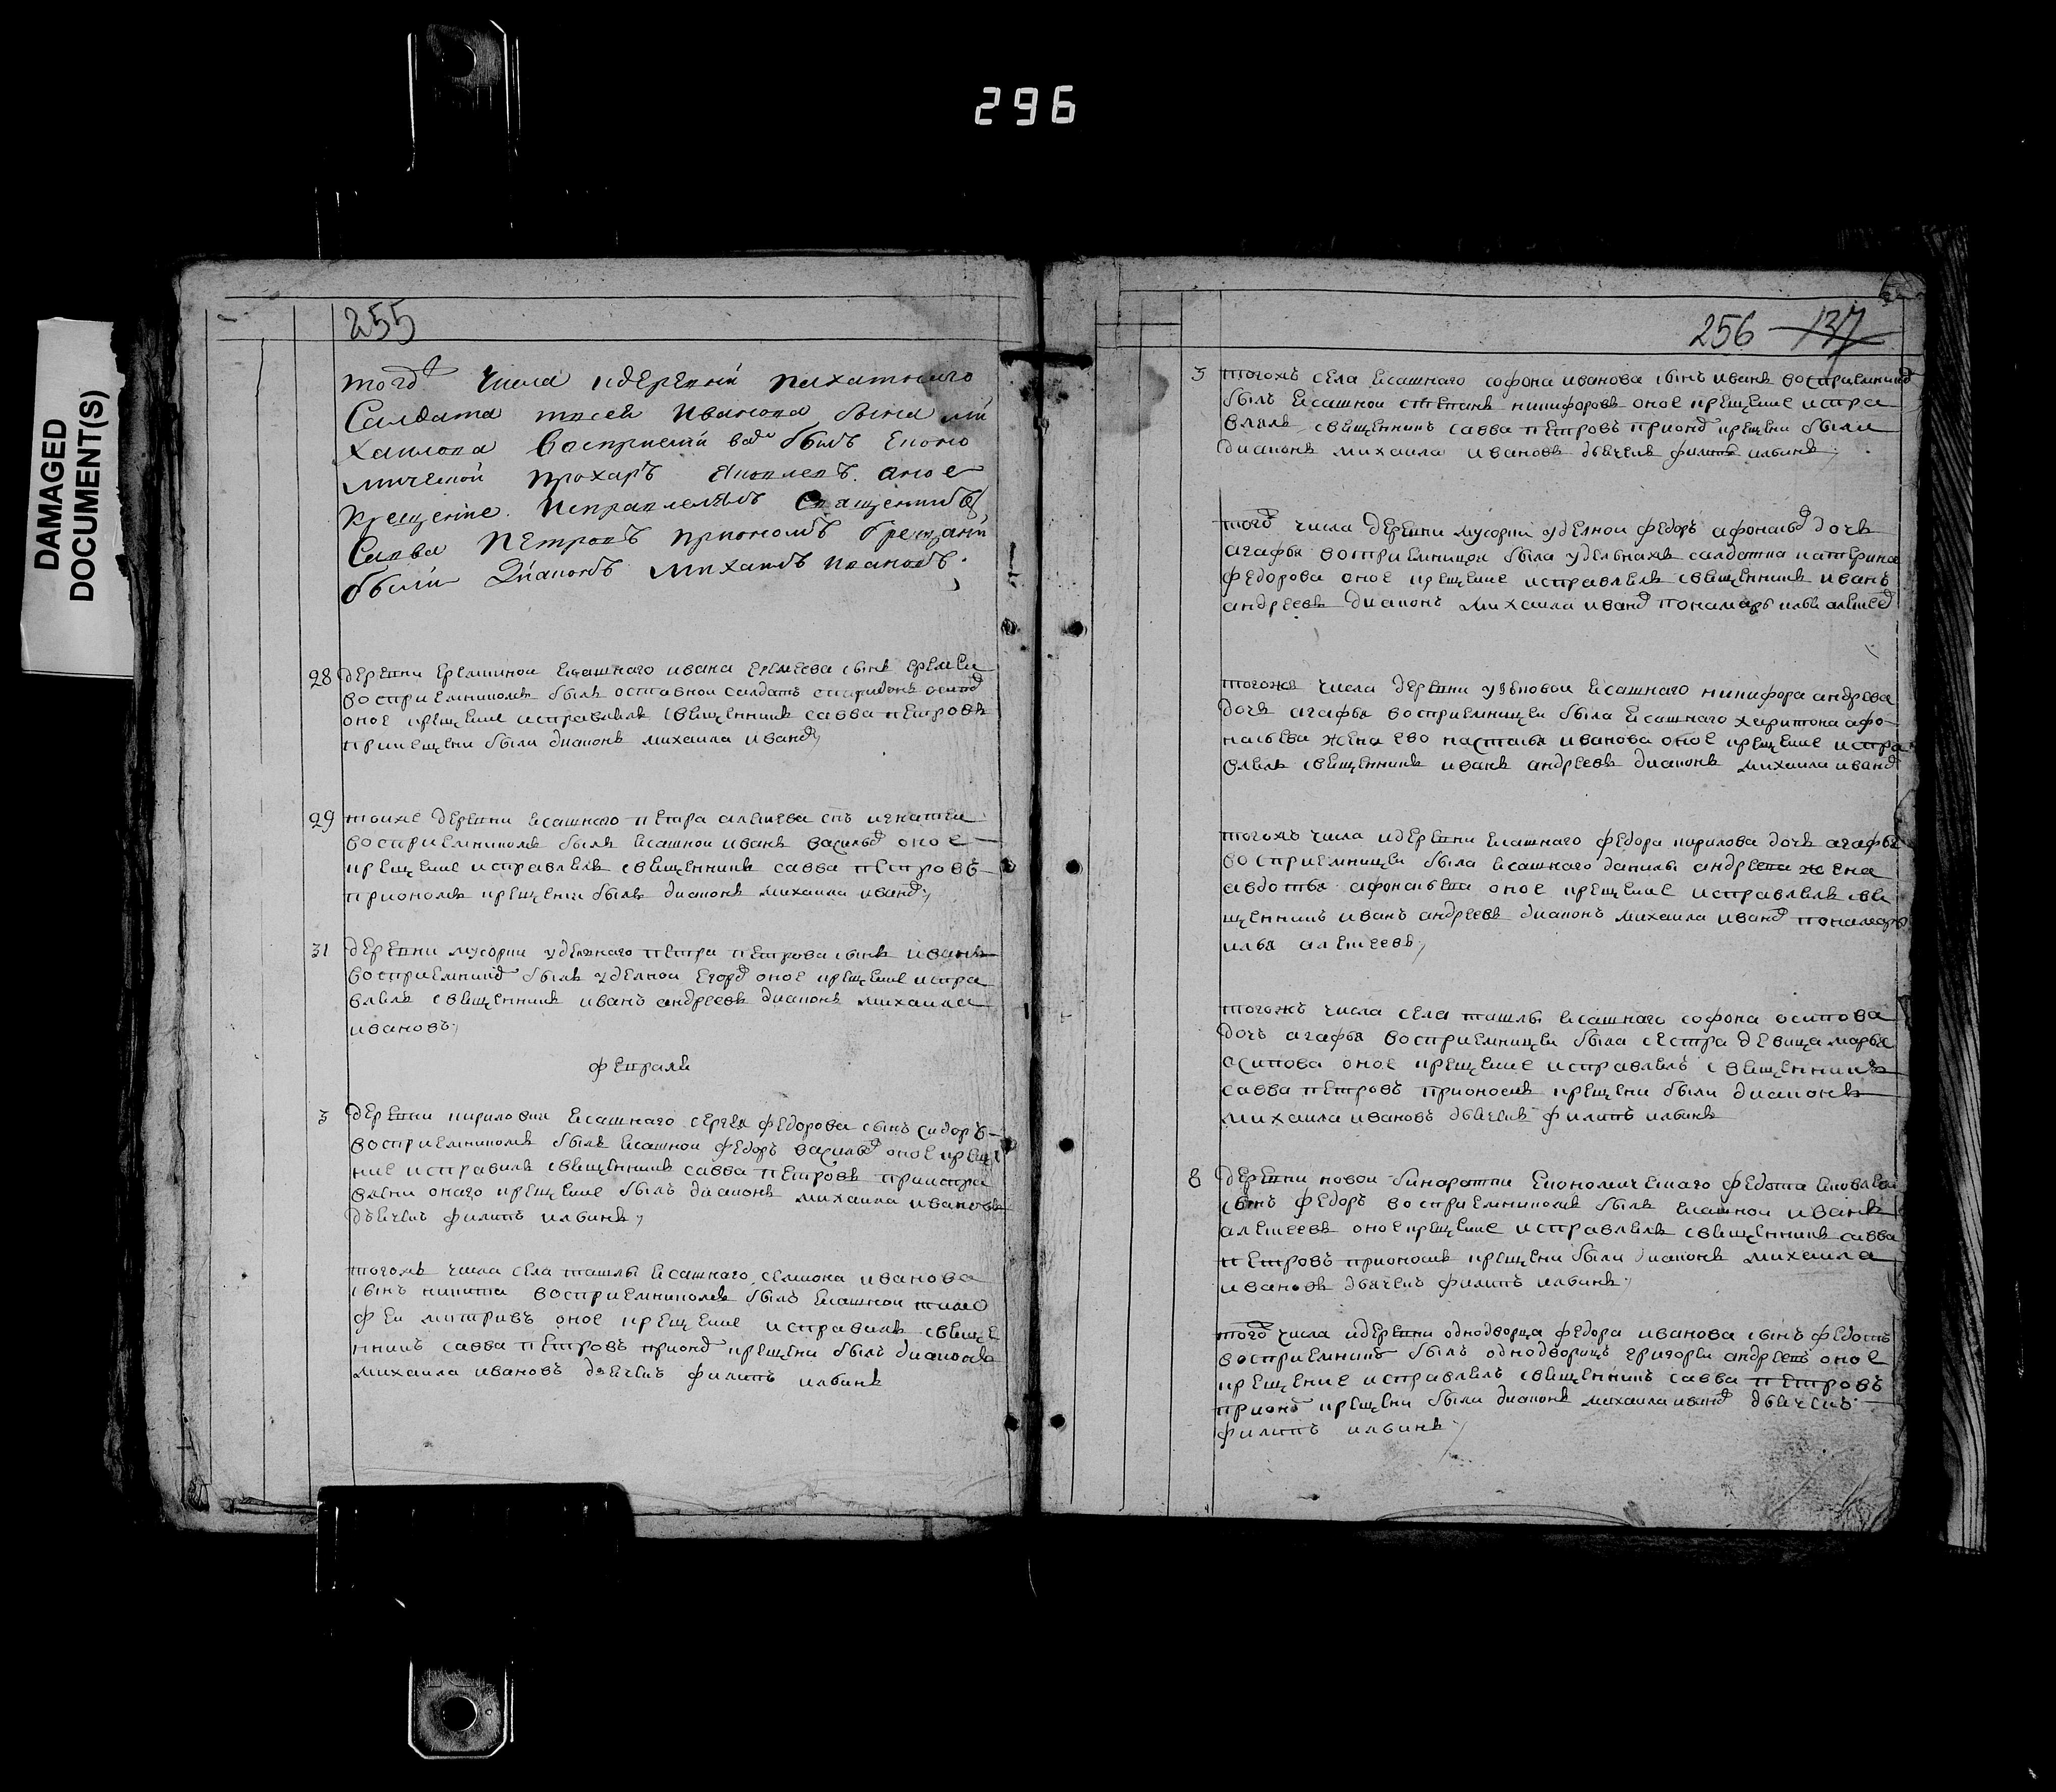 296
DAMAGED
DOCUMENT(S)
255
того числа идеревни пахатнаго
Салдата Иванова сына ми
хаилова восприемни был еконо
мичекои прохаръ яковлевъ оное
крещение исправлялъ священникъ
Савва Петровъ приономъ крещени
были Диаконъ михаилъ ивановъ
28 деревни еремкинои ясашнаго ивана еремеева сынъ еремеи
восприемникомъ былъ оставнои салдатъ спиридонъ осипо
оное крещение исправлялъ священникъ савва петровъ
прикрещени были диаконъ михаила ивано
29 тоиже деревни ясашнаго петра алексеева снъ игнатеи
восприемникомъ былъ ясашнои иванъ василье оное
крещение исправлялъ священникъ савва петровъ
приономъ крещени былъ диаконъ михаила ивано
31 деревни мусорки уделнаго петра петрова сынъ иванъ
восприемнико былъ уделнои егоро оное крещение испра
влялъ священникъ иванъ андреевъ диаконъ михаила
ивановъ
февраля
3 деревни кириловки ясашнаго сергея федорова сынъ сидоръ
восприемникомъ былъ ясашнои федоръ василье оное креще
ние исправилъ священникъ савва петровъ приисправ
влени онаго крещение былъ диаконъ михаила ивановъ
дьячекъ филипъ ильинъ
тогожъ числа села ташлы ясашнаго семиона иванова
сынъ никита восприемникомъ былъ ясашнои тимо
феи митривъ оное крещение исправилъ свяще
нникъ савва петровъ прионо крещени былъ диаконъ
михаила ивановъ дьячекъ филипъ ильинъ
256 137
3 тогожъ села ясашнаго софона иванова сынъ иванъ восприемнико
былъ ясашнои степанъ никифоровъ оное крещение испра
влялъ священникъ савва петровъ прионо крещени были
диаконъ михаила ивановъ дьячекъ филипъ ильинъ
того числа деревни мусорки уделнои федоръ афонасье дочь
агафья восприемницои была уделнаяъ салдатка катерина
федорова оное крещение исправлялъ священникъ иванъ
андреевъ диаконъ михаила ивано понамарь илья алексее
тогоже числа деревни узековои ясашнаго никифора андрева
дочь агафья восприемницеи была ясашнаго харитона афо
насьева жена ево настасья иванова оное крещение испра
влялъ священникъ иванъ андреевъ диаконъ михаила ивано
тогожъ числа идеревни ясашнаго федора кирилова дочь агафья
восприемницеи была ясашнаго данилы андреева жена
авдотья афонасьева оное крещение исправлялъ свя
щенникъ иванъ андреевъ диаконъ михаила ивано понамарь
илья алексеевъ
тогожъ числа села ташлы ясашнаго софона осипова
дочъ агафья восприемницеи была сестра девица марья
осипова оное крещение исправлялъ священникъ
савва петровъ прионосмъ крещени были диаконъ
михаила ивановъ дьячекъ филипъ ильинъ
8 деревни новои бинаратки економическаго федота яковлева
сынъ федоръ восприемникомъ былъ ясашнои иванъ
алексеевъ оное крещение исправлялъ священникъ савва
петровъ прионосмъ крещени были диаконъ михаила
ивановъ дьячекъ филипъ ильинъ
того числа идеревни однодворца федора иванова сынъ федотъ
восприемникъ былъ однодворецъ григореи андреевъ оное
крещение исправлялъ священникъ савва петровъ
прионо крещени были диаконъ михаила ивано дьячекъ
филипъ ильинъ